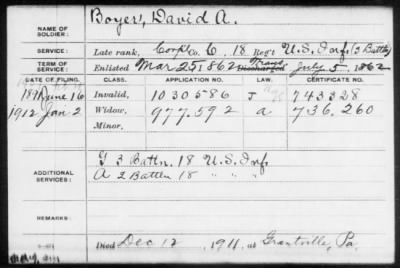 NAME OF SOLDIER: Boyer, David A.
SERVICE: Late rank, Corpl Co. C, 18 Reg't U.S. Inf. (2 Battn)
TERM OF SERVICE: Enlisted Mar 25, 1862 Trans Discharged July 5, 1862
DATE OF FILING. CLASS. APPLICATION NO. LAW. CERTIFICATE NO.
1891 June 16 Invalid, 1030586 J 743328
1912 Jan 2 Widow, 977.592 a 736.260
Minor,
ADDITIONAL SERVICES: G 3 Battn. 18 U.S. Inf.
A 2 Battln 18 " " "
REMARKS:
Died Dec 12, 1911, at Grantville, Pa.